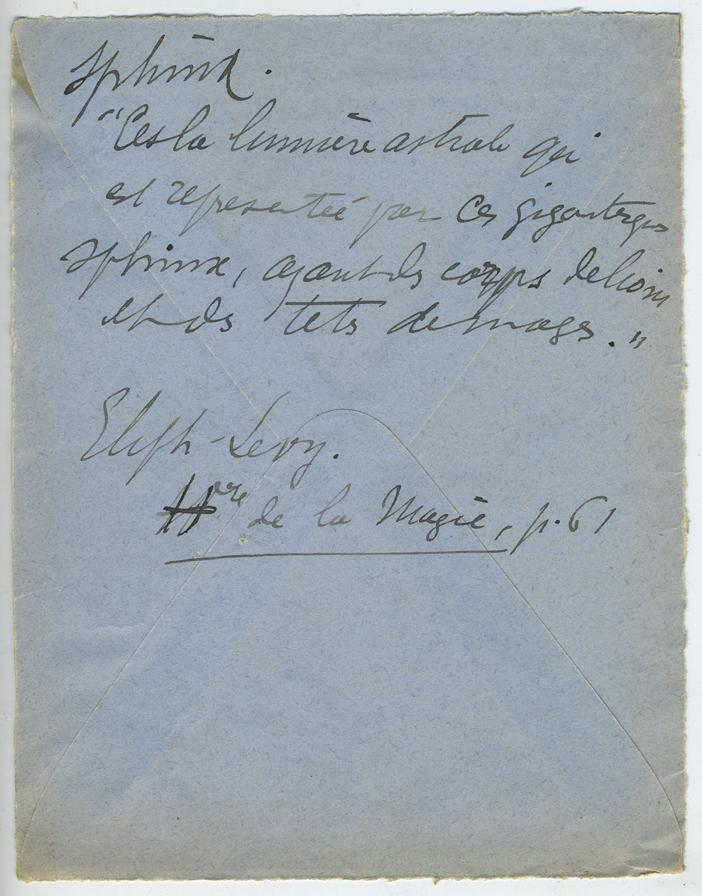 Sphinx.
"C'est la lumière astrale qui
est representée par ces gigantesques
Sphinx, ayant ds corps de lions
et ds têts de mages."
Eliph-Levy.
Hre de la Magie, p. 61